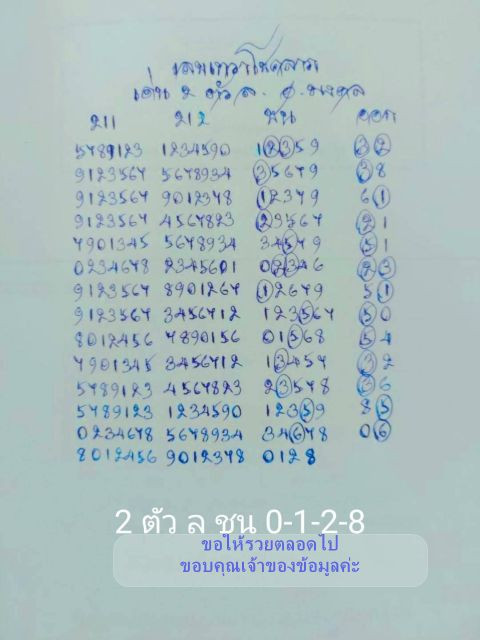 เด่น 2 ตัว ล.
211 212 ชน ออก
5789123 1234590 12359 32
9123567 5678934 35679 38
9123567 9012378 12379 61
9123567 4567823 23567 21
7901345 5678934 34579 51
0234678 2345601 02346 23
9123567 8901267 12679 51
9123567 3456712 123567 50
8012456 7890156 01568 54
7901345 3456712 13457 32
5789123 4567823 23578 36
5789123 1234590 12359 85
0234678 5678934 34678 06
8012456 9012378 0128
2 ตัว ล ชน 0-1-2-8
ขอให้รวยตลอดไป
ขอบคุณเจ้าของข้อมูลค่ะ